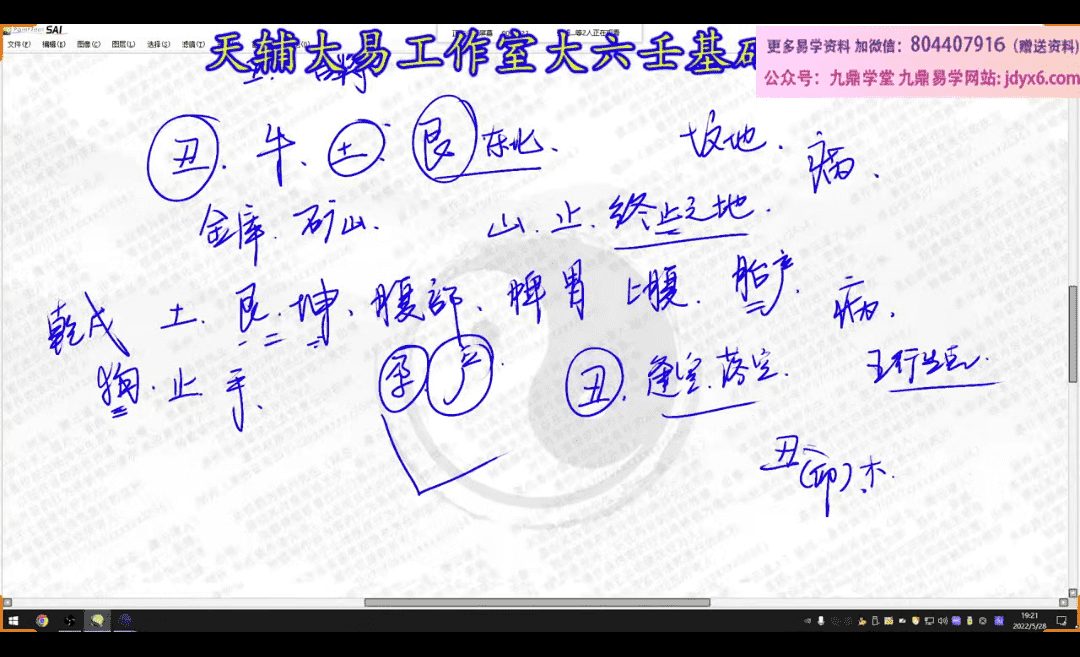 SAI
文件(F) 编辑(E) 图像(C) 图层(L) 选择(S) 滤镜(T)
等2人正在观看
天辅大易工作室大六壬基础
更多易学资料 加微信：804407916（赠送资料)
公众号：九鼎学堂 九鼎易学网站: jdyx6.com
丑. 牛、土. 艮 东北. 坟地. 病.
金库. 矿山. 山. 止. 终止之地.
乾戌 土. 艮. 坤、腹部、脾胃 腹. 胎产. 病.
狗. 止 手. 孕 产. 丑. 逢空. 落空. 五行生克.
丑
(卯). 木
19:21
2022/5/28